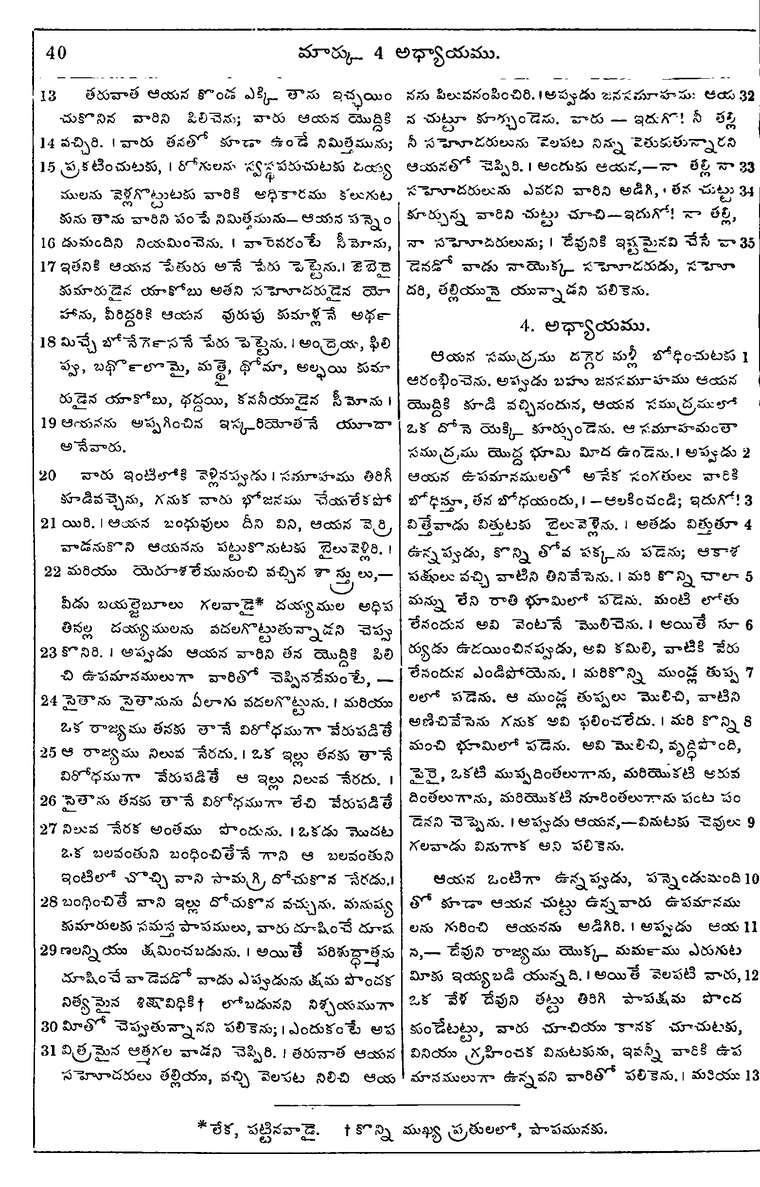 40 మార్కు 4 అధ్యాయము.
13 తరువాత ఆయన కొండ ఎక్కి తాను ఇచ్ఛయిం
చుకొనిన వారిని పిలిచెను; వారు ఆయన యొద్దికి
14 వచ్చిరి. । వారు తనతో కూడా ఉండే నిమిత్తమును;
15 ప్రకటించుటకు, । రోగులను స్వస్థపరుచుటకు దయ్య
ములను వెళ్లగొట్టుటకు వారికి అధికారము కలుగుట
కును తాను వారిని పంపే నిమిత్తమును— ఆయన పన్నెం
16 డుమందిని నియమించెను. । వారెవరంటే సీమోను,
17 ఇతనికి ఆయన పేతురు అనే పేరు పెట్టెను. । జెబెదై
కుమారుడైన యాకోబు అతని సహోదరుడైన యో
హాను, వీరిద్దరికి ఆయన వురుపు కుమాళ్లనే అథ౯
18 మిచ్చే బోనేగె౯సనే పేరు పెట్టెను. । అంద్రెయ, ఫిలి
ప్వు, బథొ౯లొమై, మత్థై, థోమా, అల్ఫయి కుమా
రుడైన యాకోబు, థద్దయి, కననీయుడైన సీమోను ।
19 ఆయనను అప్పగించిన ఇస్కరియోతనే యూదా
అనేవారు.
20 వారు ఇంటిలోకి వెళ్లినప్పుడు । సమూహము తిరిగీ
కూడివచ్చెను, గనుక వారు భోజనము చేయలేకపో
21 యిరి. । ఆయన బంధువులు దీని విని, ఆయన వెర్రి
వాడనుకొని ఆయనను పట్టుకొనుటకు బైలువెళ్లిరి. ।
22 మరియు యెరూశలేమునుంచి వచ్చిన శాస్త్రులు,—
వీడు బయల్జెబూలు గలవాడై* దయ్యముల అధిప
తివల్ల దయ్యములను వదలగొట్టుతున్నాడని చెప్పు
23 కొనిరి. । అప్పుడు ఆయన వారిని తన యొద్దికి పిలి
చి ఉపమానములుగా వారితో చెప్పినదేమంటే, —
24 సైతాను సైతానును ఏలాగు వదలగొట్టును. । మరియు
ఒక రాజ్యము తనకు తానే విరోధముగా వేరుపడితే
25 ఆ రాజ్యము నిలువ నేరదు. । ఒక ఇల్లు తనకు తానే
విరోధముగా వేరుపడితే ఆ ఇల్లు నిలువ నేరదు. ।
26 సైతాను తనకు తానే విరోధముగా లేచి వేరుపడితే
27 నిలువ నేరక అంతము పొందును. । ఒకడు మొదట
ఒక బలవంతుని బంధించితేనే గాని ఆ బలవంతుని
ఇంటిలో చొచ్చి వాని సామగ్రి దోచుకొన నేరడు.।
28 బంధించితే వాని ఇల్లు దోచుకొన వచ్చును. మనుష్య
కుమారులకు సమస్త పాపములు, వారు దూషించే దూష
29 ణలన్నియు క్షమించబడును. । అయితే పరిశుద్ధాత్మను
దూషించే వాడెవడో వాడు ఎప్పుడును క్షమ పొందక
నిత్యమైన శిక్షావిధికి† లోబడునని నిశ్చయముగా
30 మీతో చెప్పుతున్నానని పలికెను; । ఎందుకంటే అప
31 విత్రమైన ఆత్మగల వాడని చెప్పిరి. । తరువాత ఆయన
సహోదరులు తల్లియు, వచ్చి వెలపట నిలిచి ఆయ
నను పిలువనంపించిరి. । అప్పుడు జనసమూహము ఆయ 32
న చుట్టూ కూర్చుండెను. వారు — ఇదుగో! నీ తల్లి
నీ సహోదరులును వెలపట నిన్ను వెతుకుతున్నారని
ఆయనతో చెప్పిరి. । అందుకు ఆయన,—నా తల్లి నా 33
సహోదరులును ఎవరని వారిని అడిగి, । తన చుట్టు 34
కూర్చున్న వారిని చుట్టు చూచి—ఇదుగో! నా తల్లి,
నా సహోదరులును; । దేవునికి ఇష్టమైనవి చేసే వా 35
డెవడో వాడు నాయొక్క సహోదరుడు, సహో
దరి, తల్లియునై యున్నాడని పలికెను.
4. అధ్యాయము.
ఆయన సముద్రము దగ్గెర మళ్లీ బోధించుటకు 1
ఆరంభించెను. అప్పుడు బహు జనసమూహము ఆయన
యొద్దికి కూడి వచ్చినందున, ఆయన సముద్రములో
ఒక దోనె యెక్కి కూర్చుండెను. ఆ సమూహమంతా
సముద్రము యొద్ద భూమి మీద ఉండెను. । అప్పుడు 2
ఆయన ఉపమానములతో అనేక సంగతులు వారికి
బోధిస్తూ, తన బోధయందు, । —ఆలకించండి; ఇదుగో! 3
విత్తేవాడు విత్తుటకు బైలువెళ్లెను. । అతడు విత్తుతూ 4
ఉన్నప్పుడు, కొన్ని తోవ పక్కను పడెను; ఆకాశ
పక్షులు వచ్చి వాటిని తినివేసెను. । మరి కొన్ని చాలా 5
మన్ను లేని రాతి భూమిలో పడెను. మంటి లోతు
లేనందున అవి వెంటనే మొలిచెను. । అయితే సూ 6
ర్యుడు ఉదయించినప్పుడు, అవి కమిలి, వాటికి వేరు
లేనందున ఎండిపోయెను. । మరికొన్ని ముండ్ల తుప్ప 7
లలో పడెను. ఆ ముండ్ల తుప్పలు మొలిచి, వాటిని
అణిచివేసెను గనుక అవి ఫలించలేదు. । మరి కొన్ని 8
మంచి భూమిలో పడెను. అవి మొలిచి, వృద్ధిపొంది,
పైరై, ఒకటి ముప్పదింతలుగాను, మరియొకటి అరువ
దింతలుగాను, మరియొకటి నూరింతలుగాను పంట పం
డెనని చెప్పెను. । అప్పుడు ఆయన,—వినుటకు చెవులు 9
గలవాడు వినుగాక అని పలికెను.
ఆయన ఒంటిగా ఉన్నప్పుడు, పన్నెండుమంది 10
తో కూడా ఆయన చుట్టు ఉన్నవారు ఉపమానము
లను గురించి ఆయనను అడిగిరి. । అప్పుడు ఆయ 11
న,— దేవుని రాజ్యము యొక్క మమ౯ము ఎరుగుట
మీకు ఇయ్యబడి యున్నది. । అయితే వెలపటి వారు, 12
ఒక వేళ దేవుని తట్టు తిరిగి పాపక్షమ పొంద
కుండేటట్టు, వారు చూచియు కానక చూచుటకు,
వినియు గ్రహించక వినుటకును, ఇవన్నీ వారికి ఉప
మానములుగా ఉన్నవని వారితో పలికెను. । మరియు 13
* లేక, పట్టినవాడై. † కొన్ని ముఖ్య ప్రతులలో, పాపమునకు.